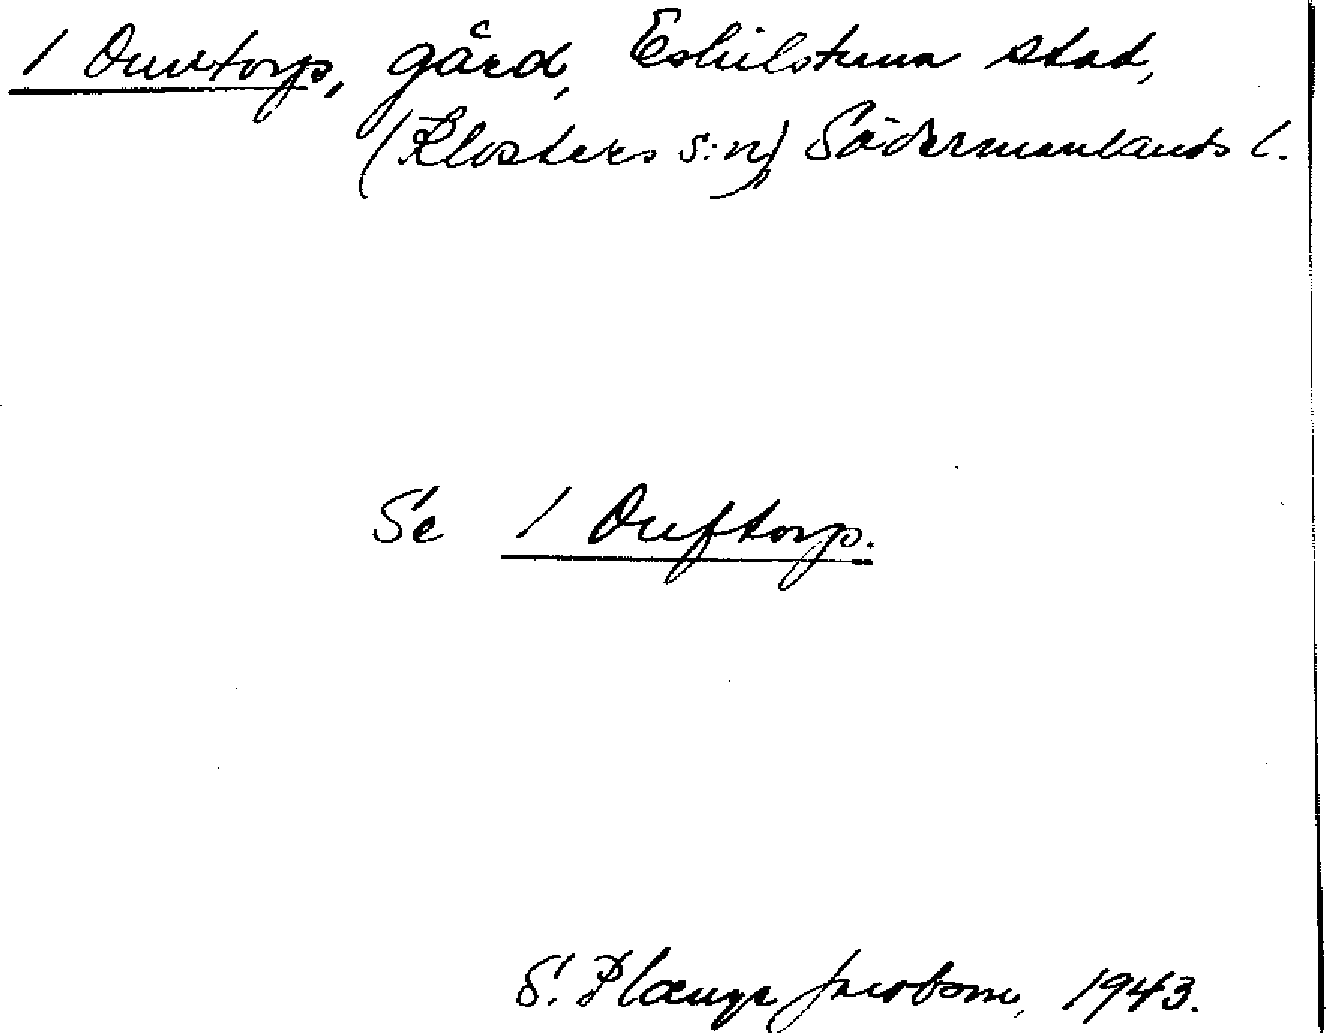 1 Duvetorp, gård, Eskilstuna stad,
(Klosters s:n), Södermanlands l.
Se 1 Duftorp.
S. Plaenge Jacobson, 1943.